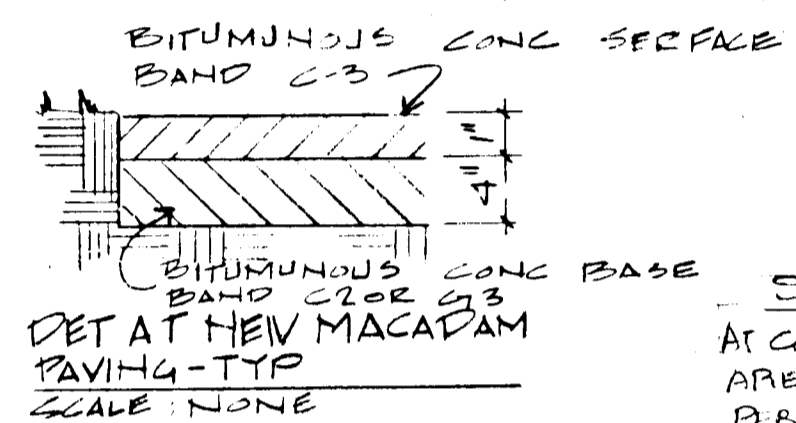 BITUMUNOUS CONC SERFACE
BAND C-3
1"
4"
BITUMUNOUS CONC BASE
BAND C2 OR G3
DET AT NEW MACADAM
PAVING-TYP
SCALE: NONE
AT
ARE
PER